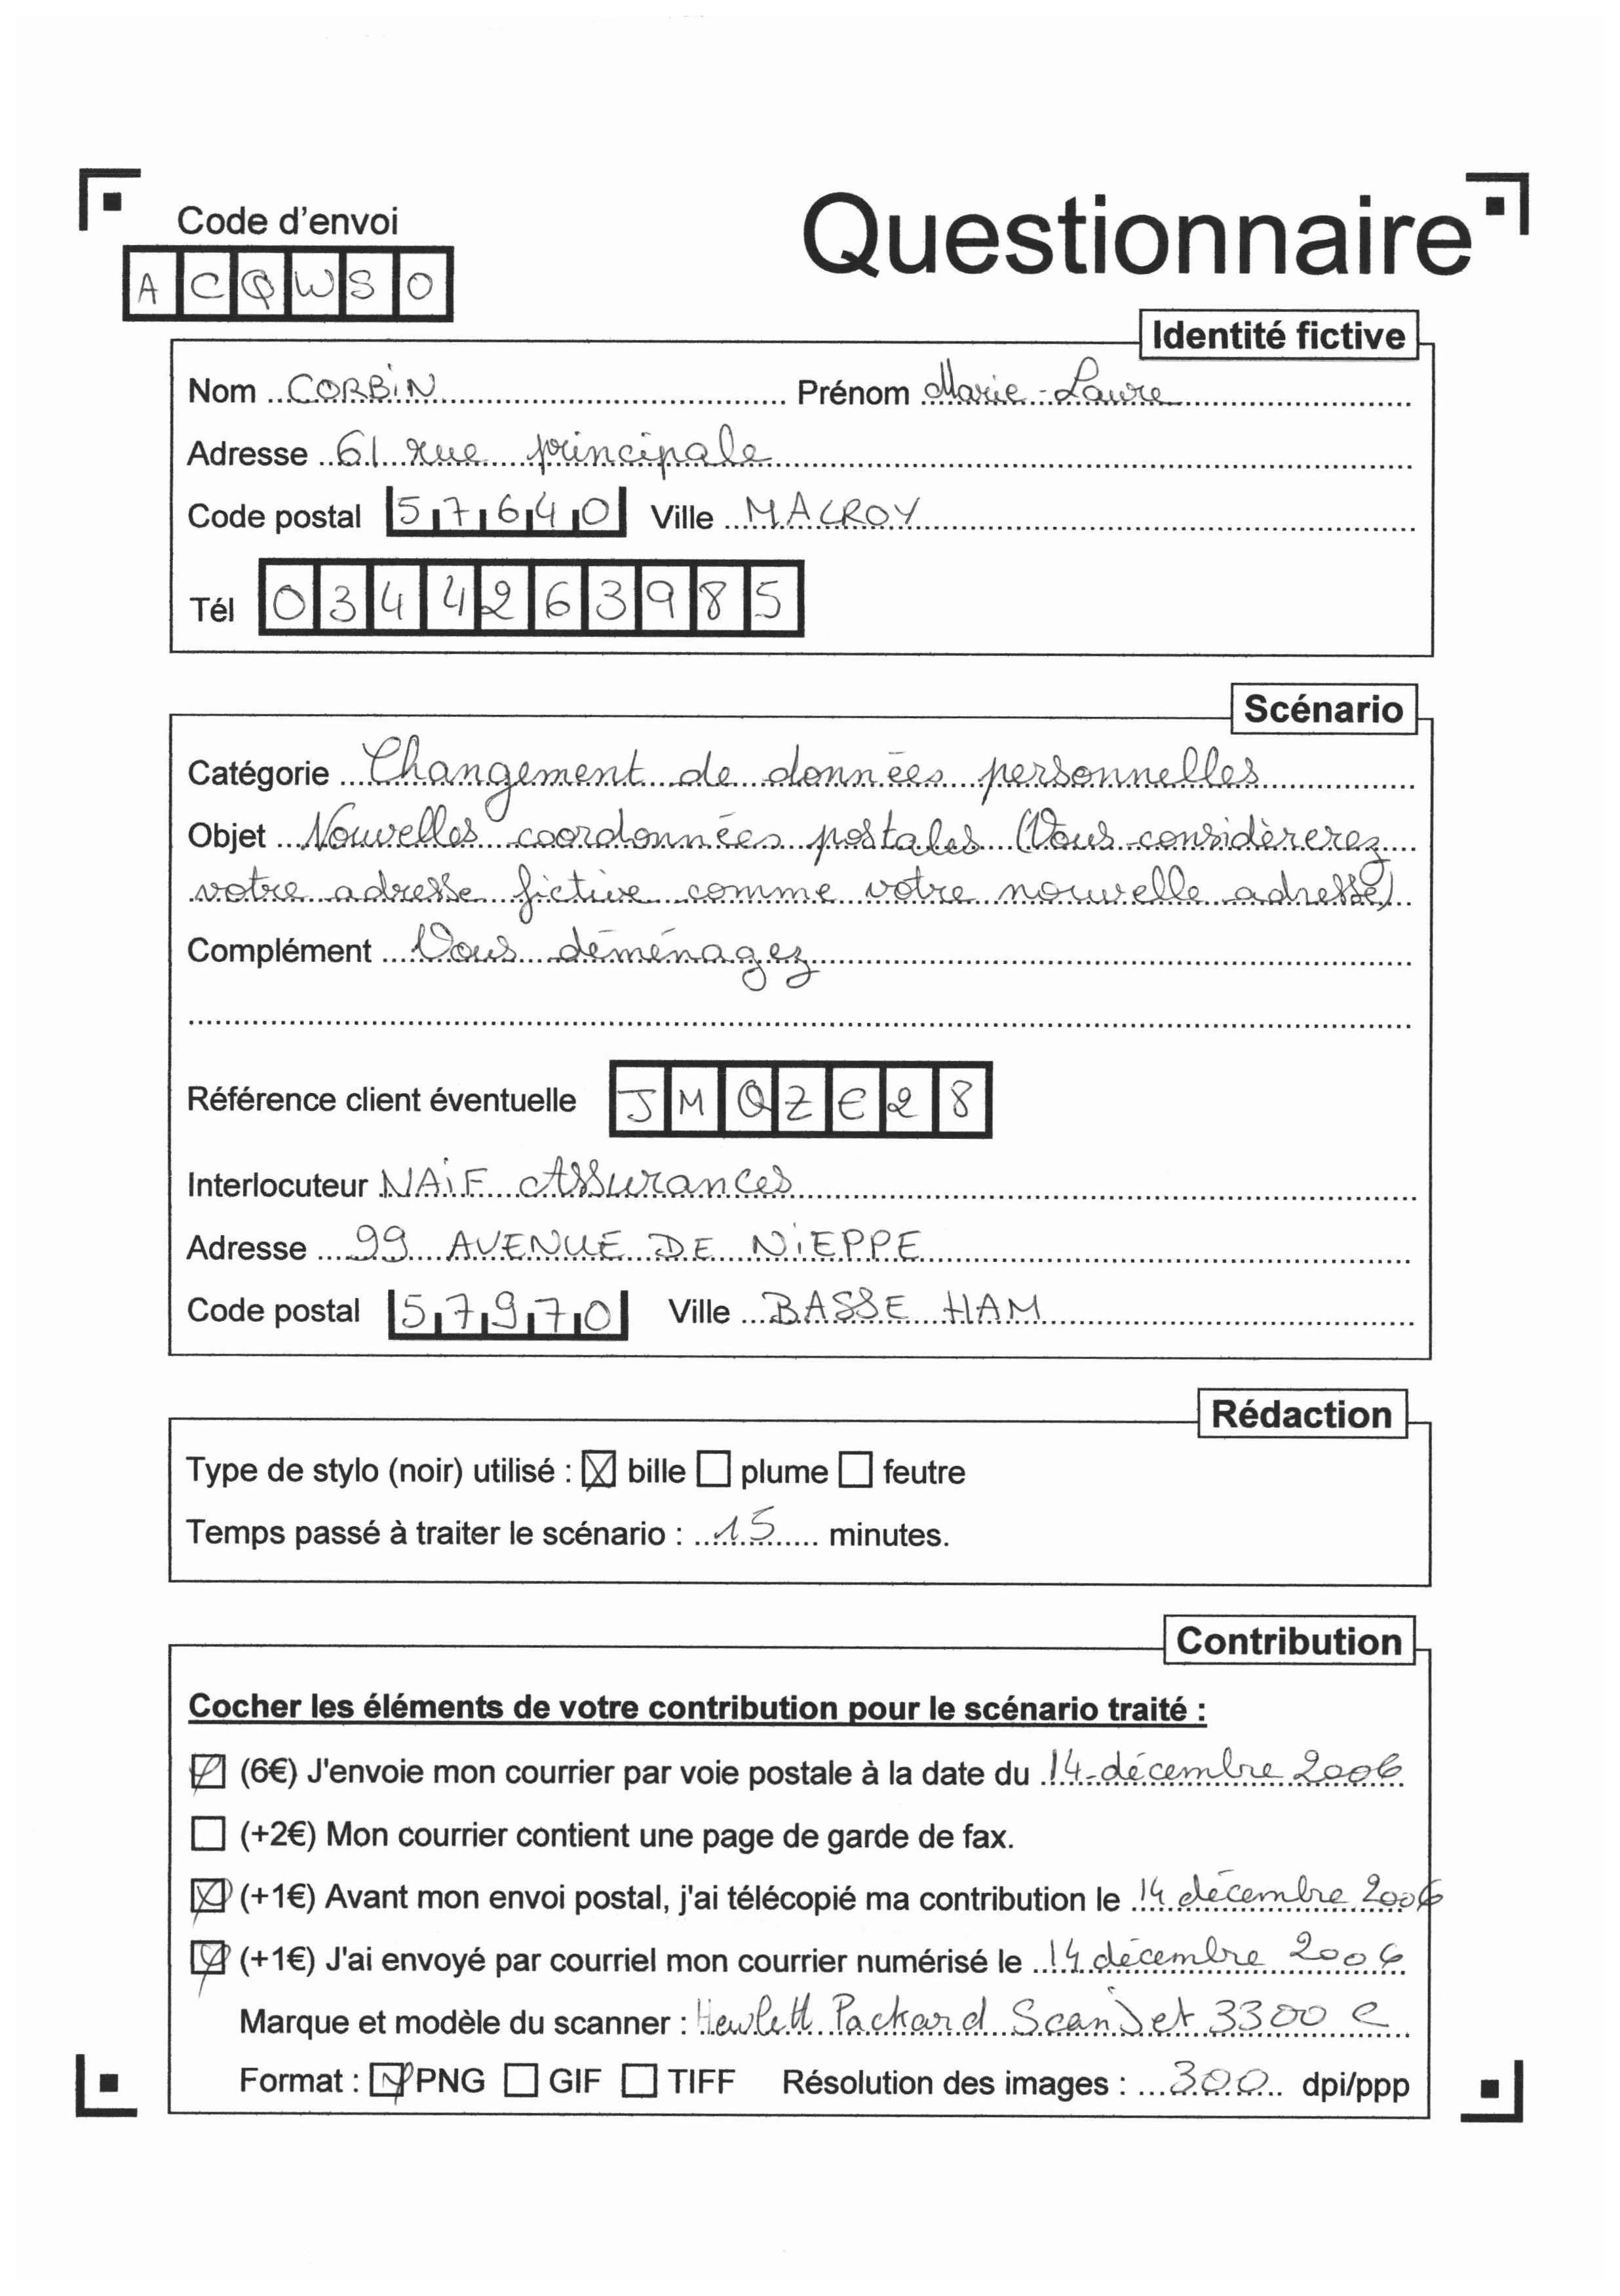 Questionnaire
Code d'envoi
ACQWSO
Identité fictive
Nom CORBIN Prénom Marie-Laure
Adresse 61 rue principale
Code postal 57640 Ville MALROY
Tél 0344263985
Scénario
Catégorie Changement de données personnelles
Objet Nouvelles coordonnées postales (Vous considèrerez
votre adresse fictive comme votre nouvelle adresse)
Complément Vous déménagez
Référence client éventuelle JMQZE28
Interlocuteur NAIF Assurances
Adresse 99 AVENUE DE NIEPPE
Code postal 57970 Ville BASSE HAM
Rédaction
Type de stylo (noir) utilisé : bille plume feutre
Temps passé à traiter le scénario : 15 minutes.
Contribution
Cocher les éléments de votre contribution pour le scénario traité :
(6€) J'envoie mon courrier par voie postale à la date du 14 décembre 2006
(+2€) Mon courrier contient une page de garde de fax.
(+1€) Avant mon envoi postal, j'ai télécopié ma contribution le 14 décembre 2006
(+1€) J'ai envoyé par courriel mon courrier numérisé le 14 décembre 2006
Marque et modèle du scanner : Hewlett Packard ScanJet 3300 C
Format : PNG GIF TIFF Résolution des images : 300 dpi/ppp